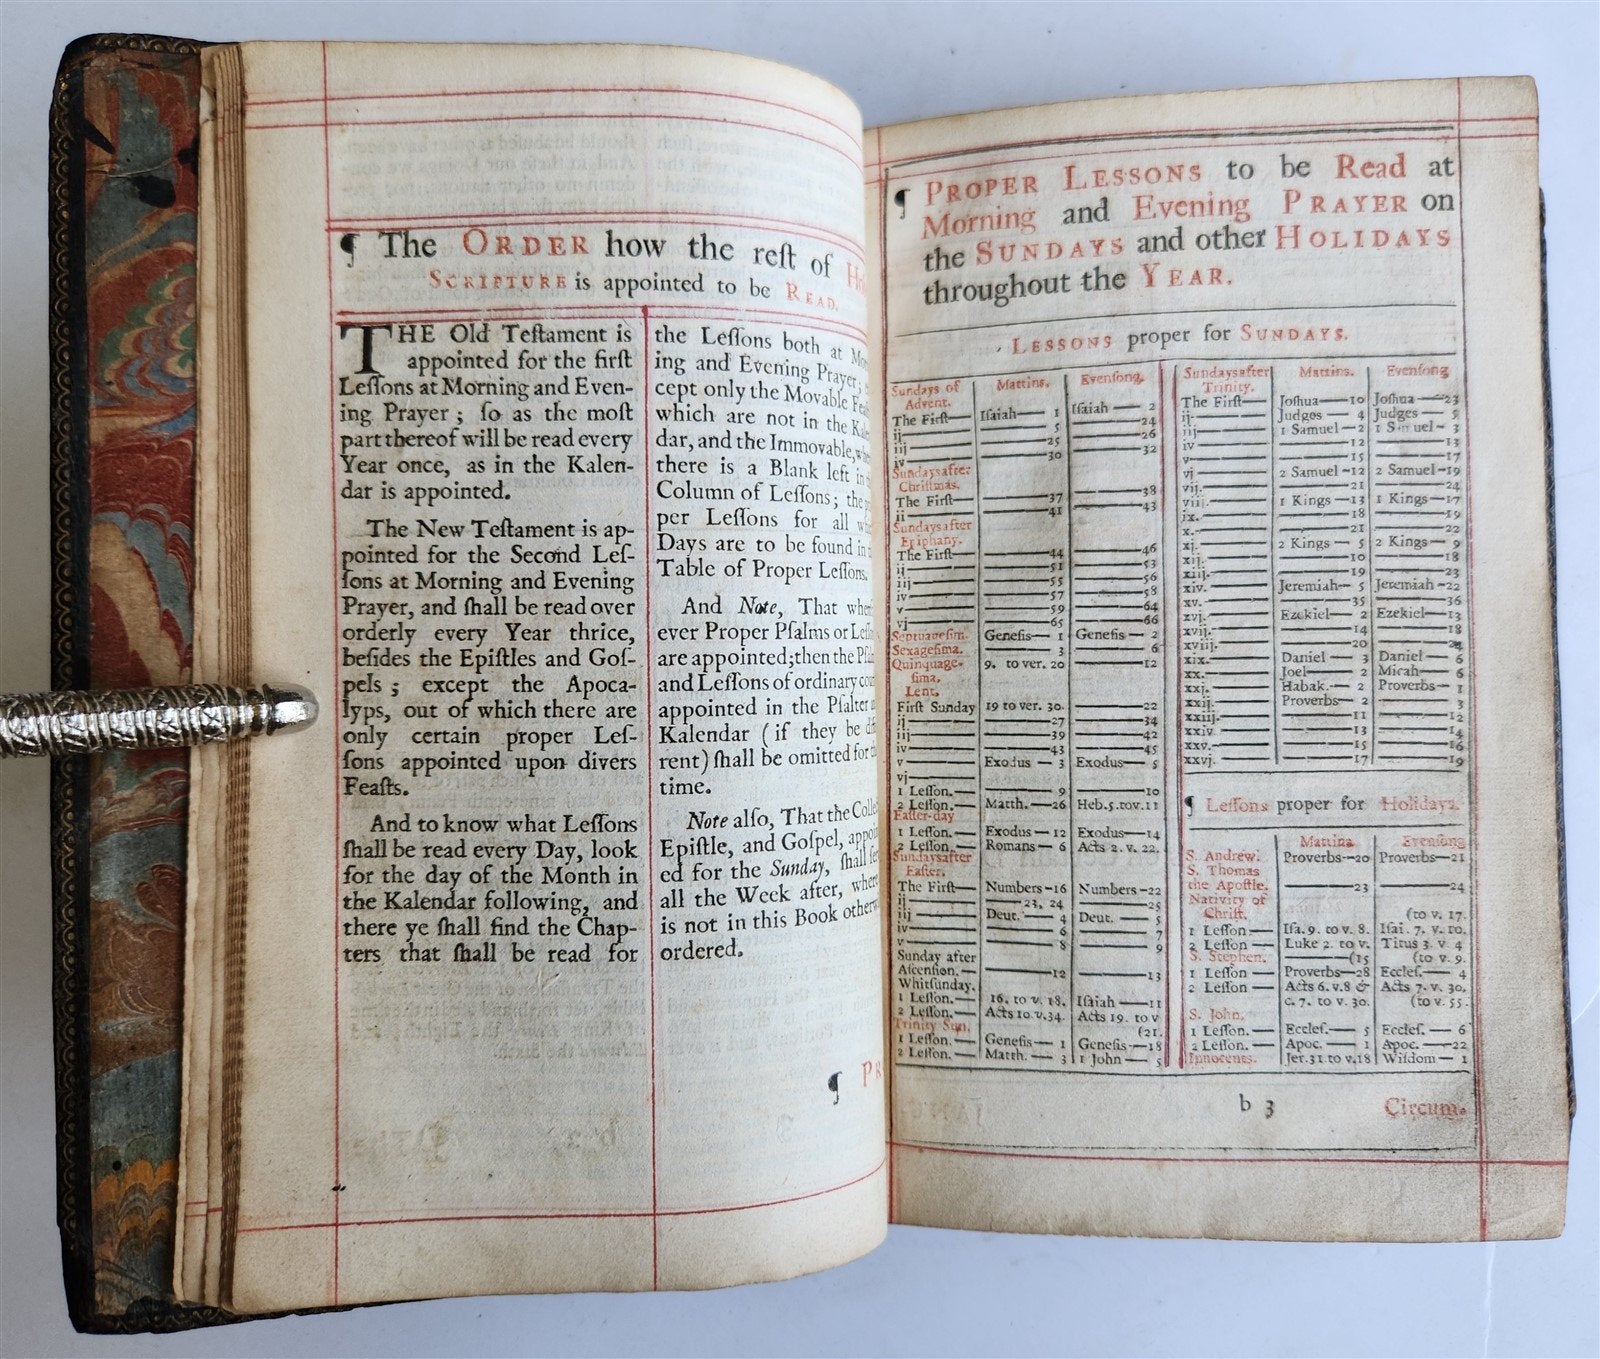 ¶ The ORDER how the reſt of
SCRIPTURE is appointed to be READ.
THE Old Teſtament is
appointed for the firſt
Leſſons at Morning and Even-
ing Prayer ; ſo as the moſt
part thereof will be read every
Year once, as in the Kalen-
dar is appointed.
The New Teſtament is ap-
pointed for the Second Leſ-
ſons at Morning and Evening
Prayer, and ſhall be read over
orderly every Year thrice,
beſides the Epiſtles and Goſ-
pels ; except the Apoca-
lyps, out of which there are
only certain proper Leſ-
ſons appointed upon divers
Feaſts.
And to know what Leſſons
ſhall be read every Day, look
for the day of the Month in
the Kalendar following, and
there ye ſhall find the Chap-
ters that ſhall be read for
the Leſſons both at
ing and Evening Prayer;
cept only the Movable
which are not in the
dar, and the Immovable,
there is a Blank left in
Column of Leſſons; the
per Leſſons for all
Days are to be found in
Table of Proper Leſſons.
And Note, That
ever Proper Pſalms or
are appointed; then the
and Leſſons of ordinary
appointed in the Pſalter
Kalendar ( if they be
rent) ſhall be omitted for
time.
Note alſo, That the
Epiſtle, and Goſpel,
ed for the Sunday, ſhall
all the Week after,
is not in this Book
ordered.
¶
¶ PROPER LESSONS to be Read at
Morning and Evening PRAYER on
the SUNDAYS and other HOLIDAYS
throughout the YEAR.
LESSONS proper for SUNDAYS.
Sundays of Mattins. Evenſong.
Advent.
The Firſt— Iſaiah — 1 Iſaiah — 2
ij — 5 — 24
iij — 25 — 26
iv — 30 — 32
Sundays after
Chriſtmas.
The Firſt— — 37 — 38
ii — 41 — 43
Sundays after
Epiphany.
The Firſt— — 44 — 46
ij — 51 — 53
iij — 55 — 56
iv — 57 — 58
v — 59 — 64
vj — 65 — 66
Septuageſim. Geneſis— 1 Geneſis — 2
Sexageſima. — 3 — 6
Quinquage- 9. to ver. 20 —12
ſima.
Lent.
Firſt Sunday 19 to ver. 30. —22
ij —27 —34
iij —39 —42
iv —43 —45
v Exodus — 3 Exodus— 5
vj
1 Leſſon. — 9 —10
2 Leſſon.— Matth. —26 Heb. 5. to v. 11
Eaſter-day
1 Leſſon.— Exodus — 12 Exodus—14
2 Leſſon.— Romans — 6 Acts 2. v. 22.
Sundays after
Eaſter.
The Firſt— Numbers —16 Numbers —22
ij — 23, 24 —25
iij — Deut. — 4 Deut. — 5
iv — 6 — 7
v — 8 — 9
Sunday after
Aſcenſion.— —12 —13
Whitſunday.
1 Leſſon.— 16. to v. 18. Iſaiah —11
2 Leſſon.— Acts 10. v. 34. Acts 19. to v
(21.
Trinity Sun.
1 Leſſon.— Geneſis — 1 Geneſis —18
2 Leſſon.— Matth. — 3 1 John — 5
Sundays after Mattins. Evenſong
Trinity.
The Firſt— Joſhua—10 Joſhua —23
ij. Judges — 4 Judges — 5
iij 1 Samuel —2 1 Samuel — 3
iv —12 —13
v —15 —17
vj 2 Samuel —12 2 Samuel —19
vij. —21 —24
viij. 1 Kings —13 1 Kings —17
ix. —18 —19
x. —21 —22
xj. 2 Kings — 5 2 Kings — 9
xij. —10 —18
xiij. —19 —23
xiv. Jeremiah— 5 Jeremiah —22
xv. —35 —36
xvj. Ezekiel— 2 Ezekiel—13
xvij. —14 —18
xviij. —20 —24
xix. Daniel — 3 Daniel — 6
xx. Joel— 2 Micah — 6
xxj. Habak.— 2 Proverbs— 1
xxij. Proverbs— 2 — 3
xxiij. —11 —12
xxiv. —13 —14
xxv. —15 —16
xxvj. —17 —19
¶ Leſſons proper for Holidays.
Mattins Evenſong
S. Andrew. Proverbs—20 Proverbs—21
S. Thomas
the Apoſtle. —23 —24
Nativity of
Chriſt. (to v. 17.
1 Leſſon — Iſa. 9. to v. 8. Iſai. 7. v. 10.
2 Leſſon — Luke 2. to v. Titus 3. v. 4
S. Stephen. (15 (to v. 9.
1 Leſſon — Proverbs—28 Eccleſ. — 4
2 Leſſon — Acts 6. v. 8 & Acts 7. v. 30.
c. 7. to v. 30. (to v. 55.
S. John.
1 Leſſon.— Eccleſ. — 5 Eccleſ. — 6
2 Leſſon.— Apoc. — 1 Apoc. —22
Innocents. Jer. 31. to v. 18 Wiſdom — 1
b 3 Circum.